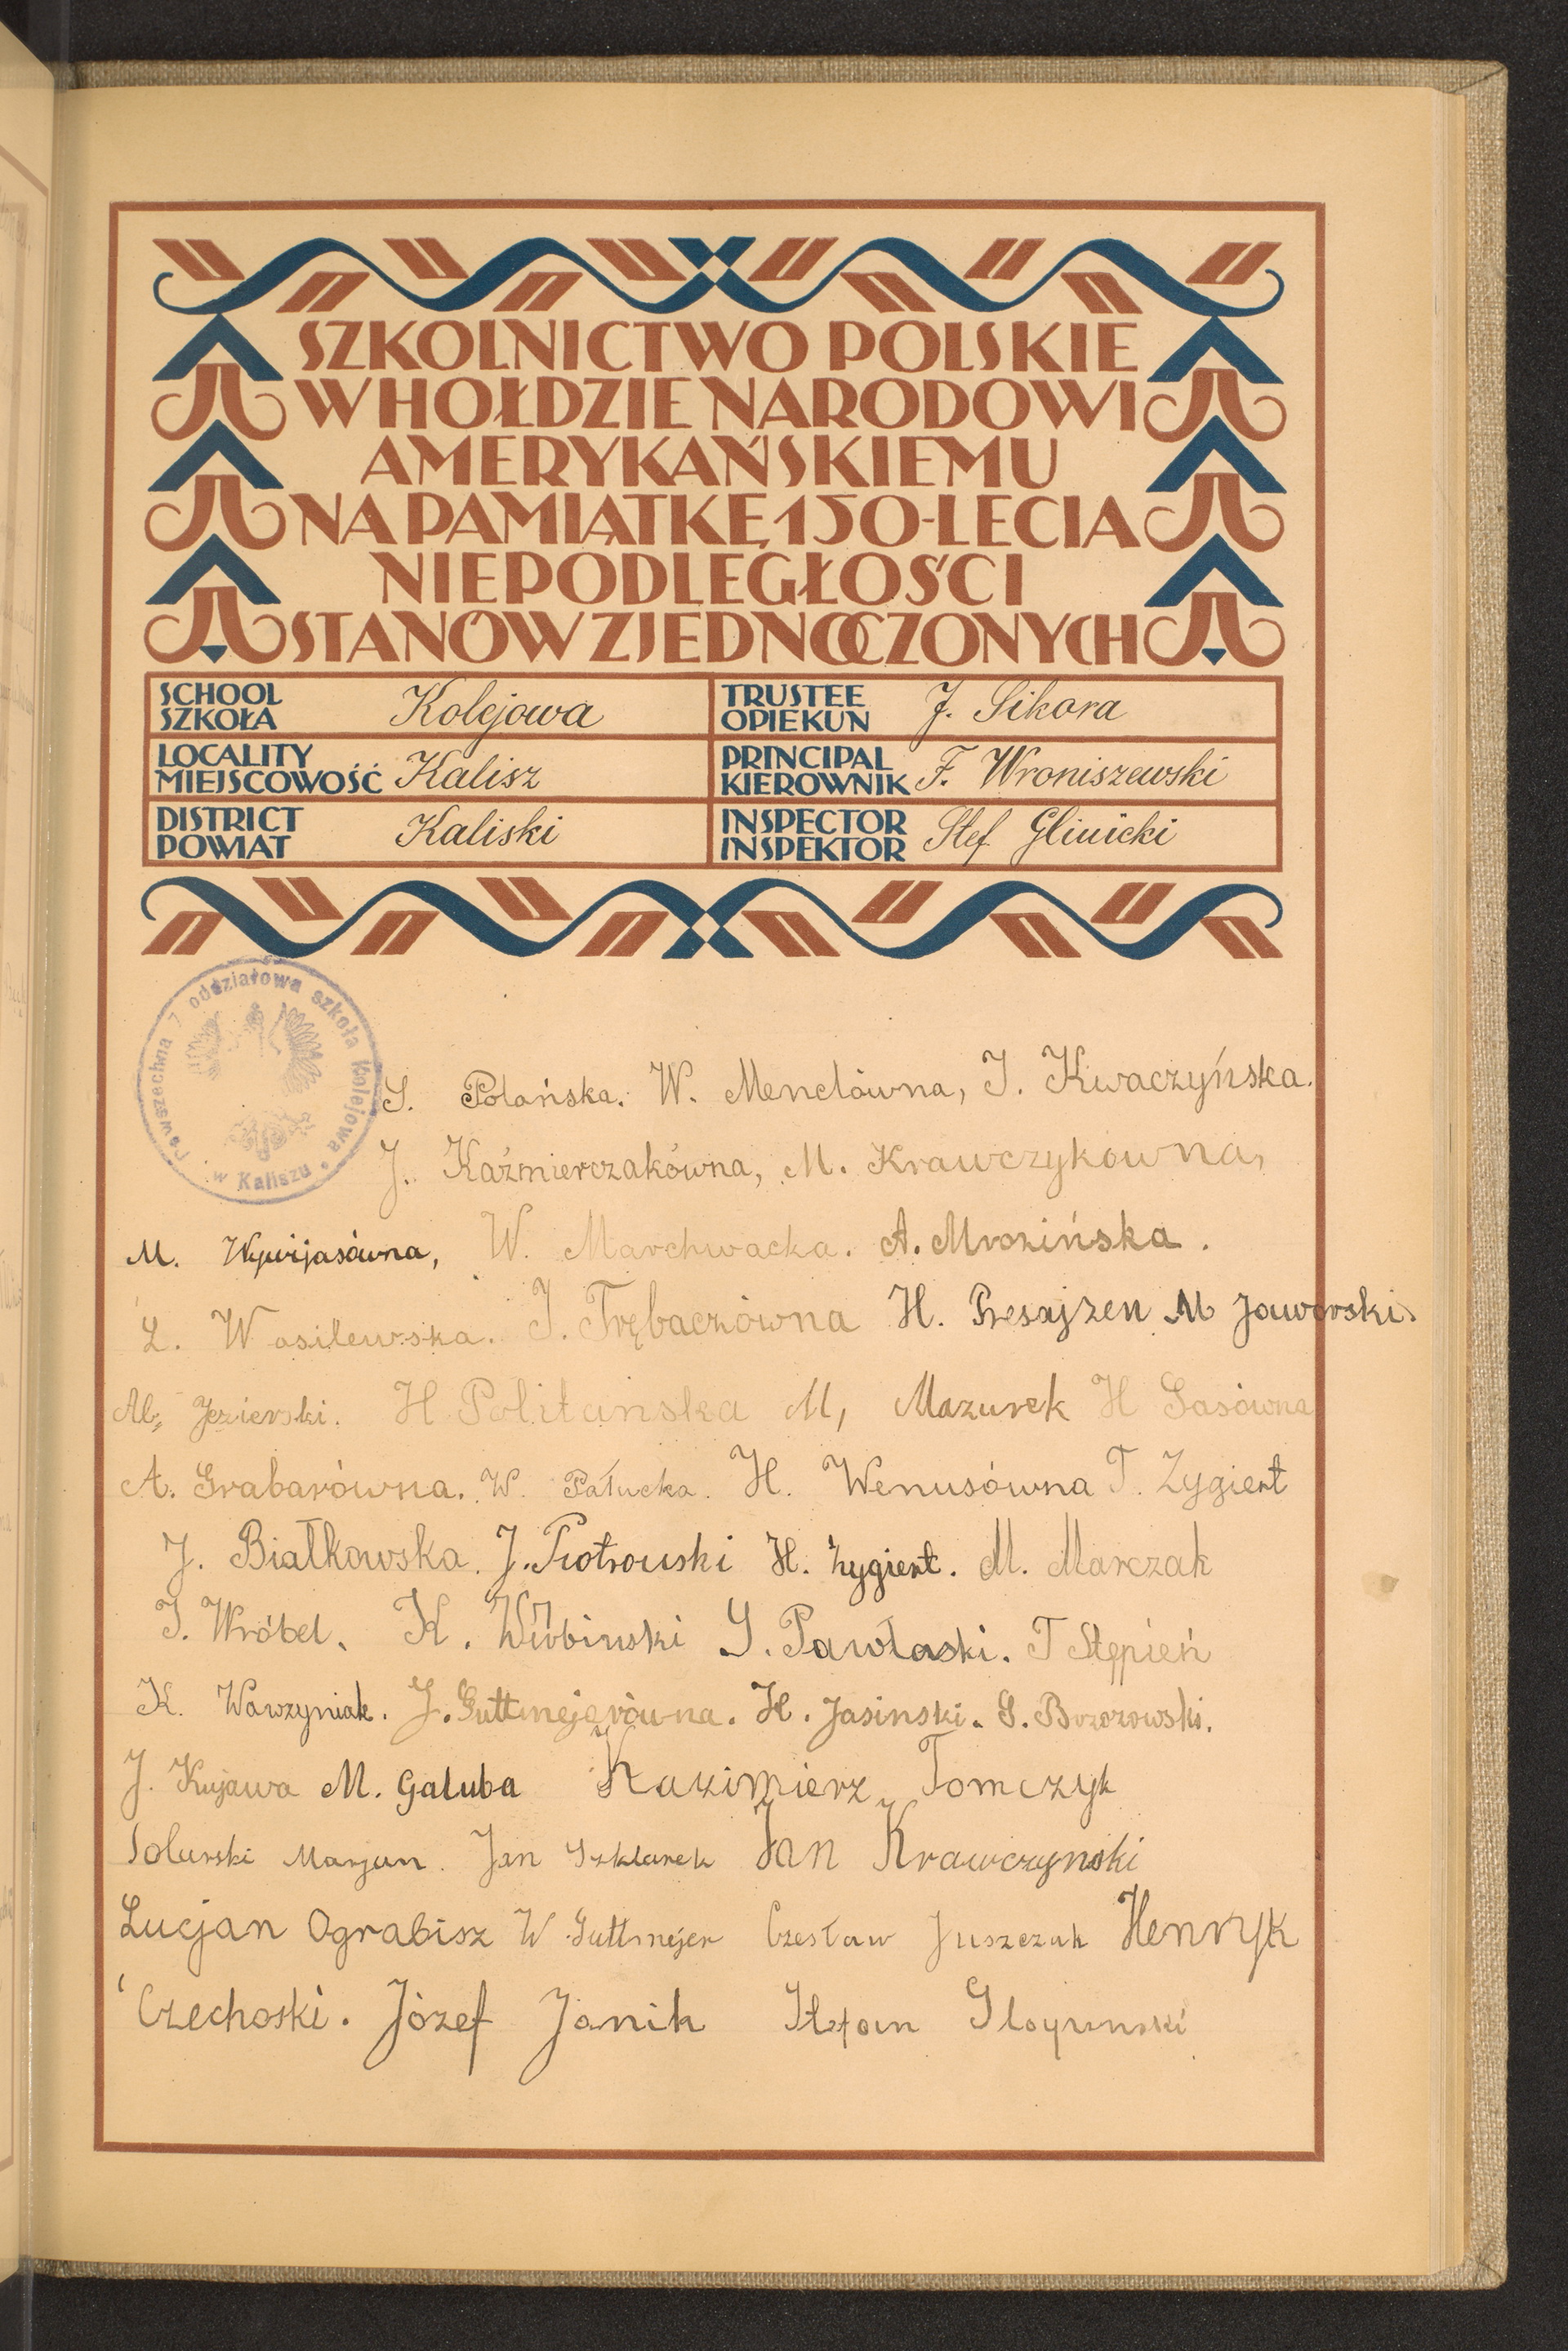 SZKOLNICTWO POLSKIE
W HOŁDZIE NARODOWI
AMERYKAŃSKIEMU
NA PAMIĄTKĘ 150-LECIA
NIEPODLEGŁOŚCI
STANÓW ZJEDNOCZONYCH
SCHOOL
SZKOŁA Kolejowa
TRUSTEE
OPIEKUN J. Sikora
LOCALITY
MIEJSCOWOŚĆ Kalisz
PRINCIPAL
KIEROWNIK F. Wroniszewski
DISTRICT
POWIAT Kaliski
INSPECTOR
INSPEKTOR Stef. Glinicki
Powszechna 7 oddziałowa szkoła Kolejowa
w Kaliszu
S. Polańska. W. Menclówna, I. Kwaczyńska.
J. Kaźmierczakówna, M. Krawczykowna,
M. Wywijasówna, W. Marchwacka. A. Mrozińska.
L. Wasilewska. I. Trębaczówna H. Presajzen M Jaworski.
Al. Jezierski. H Politańska M, Mazurek H Gasówna
A. Grabarówna. W. Pałucka. H. Wenusówna T. Zygiert
J. Białkowska. J. Piotrouski H. Zygiert. M. Marczak
I. Wróbel. K. Wróbiński S. Pawłaski. T Stępień
K. Wawrzyniak. J. Guttmejerówna. H. Jasinski. S. Brzozowski.
J. Kujawa M. Galuba Kazimierz Tomczyk
Solarski Marjan. Jan Szklarek Jan Krawczynski
Lucjan Ograbisz W Guttmejer Czesław Juszczak Henryk
Czechoski. Józef Janik Stefan